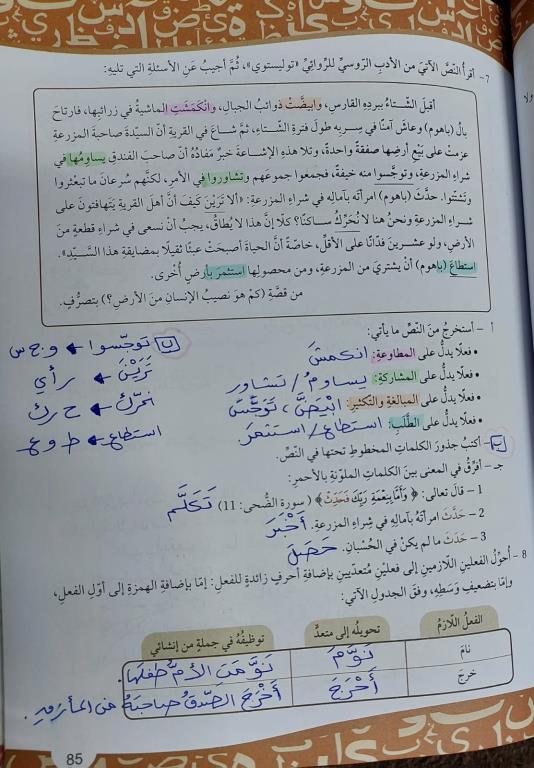 7- أقرأ النّصّ الآتيَ من الأدبِ الرّوسيِّ للرِّوائيِّ «توليستوي»، ثُمَّ أجيبُ عَنِ الأسئلةِ التي تليهِ:
أقبلَ الشّتاءُ ببردِهِ القارسِ، وابيضّتْ ذوائبُ الجبالِ، وانْكمَشَتِ الماشيةُ في زرائبِها، فارتاحَ
بالُ (باهوم) وعاشَ آمنًا في سربِهِ طولَ فترةِ الشّتاءِ، ثمَّ شاعَ في القريةِ أنّ السيّدةَ صاحبةَ المزرعةِ
عزمتْ على بَيْعِ أرضِها صفقةً واحدةً، وتلا هذهِ الإشاعةَ خبرٌ مفادُهُ أنّ صاحبَ الفندقِ يساومُها في
شراءِ المزرعةِ، وتوجّسوا منه خيفةً، فجمعُوا جموعَهم وتشاوروا في الأمرِ، لكنَّهم سُرعانَ ما تبعثروا
وتشتّتوا. حدَّثَ (باهوم) امرأتَه بآمالِه في شراءِ المزرعةِ: «ألا تَرَيْنَ كيفَ أنَّ أهلَ القريةِ يتهافتونَ على
شراءِ المزرعةِ ونحنُ هنا لا نُحَرِّكُ ساكنًا؟ كلا إنَّ هذا لا يُطاقُ، يجبُ أنْ نسعى في شراءِ قطعةٍ منَ
الأرضِ، ولو عشرينَ فدّانًا على الأقلِّ، خاصّةً أنَّ الحياةَ أصبحَتْ عبئًا ثقيلًا بمضايقةِ هذا السَّيِّدِ».
استطاعَ (باهوم) أن يشتريَ من المزرعةِ، ومن محصولِها استثمرَ بأرضٍ أُخرى.
من قصّةِ (كمْ هوَ نصيبُ الإنسانِ منَ الأرضِ؟) بتصرُّفٍ.
أ - أستخرجُ منَ النّصِّ ما يأتي:
• فعلًا يدلُّ على المطاوعةِ: انكمشَ
• فعلًا يدلُّ على المشاركةِ: يساومُ / تشاور
• فعلًا يدلُّ على المبالغةِ والتكثيرِ: ابيضَّ، توجَّسَ
• فعلًا يدلُّ على الطَّلَبِ: استطاع / استثمر
ب توجّسوا ← و ج س
تَرَيْنَ ← رأي
نحَرِّك ← ح ر ك
استطاع ← ط و ع
ب- أكتبُ جذورَ الكلماتِ المخطوطِ تحتَها في النّصِّ.
جـ - أفرِّقُ في المعنى بينَ الكلماتِ الملوّنةِ بالأحمرِ:
1 - قالَ تعالى: ﴿ وَأَمَّا بِنِعْمَةِ رَبِّكَ فَحَدِّثْ ﴾ (سورة الضُّحى: 11) تَكَلَّم
2 - حَدَّثَ امرأتَهُ بآمالِهِ في شِراءِ المزرعةِ. أَخْبَرَ
3 - حَدَثَ ما لم يكنْ في الحُسْبانِ. حَصَلَ
8 - أُحوِّلُ الفعلينِ اللازمينِ إلى فعليْنِ متعدّيينِ بإضافةِ أحرفٍ زائدةٍ للفعلِ: إمّا بإضافةِ الهمزةِ إلى أوّلِ الفعلِ،
وإمّا بتضعيفِ وَسَطِهِ، وفقَ الجدولِ الآتي:
الفعلُ اللّازمُ تحويلُه إلى متعدٍّ توظيفُهُ في جملةٍ من إنشائي
نامَ نَوَّمَ نَوَّمَتِ الأمُّ طفلَها.
خرجَ أَخْرَجَ أَخْرَجَ الصِّدقُ صاحبَهُ من المأزقِ.
85